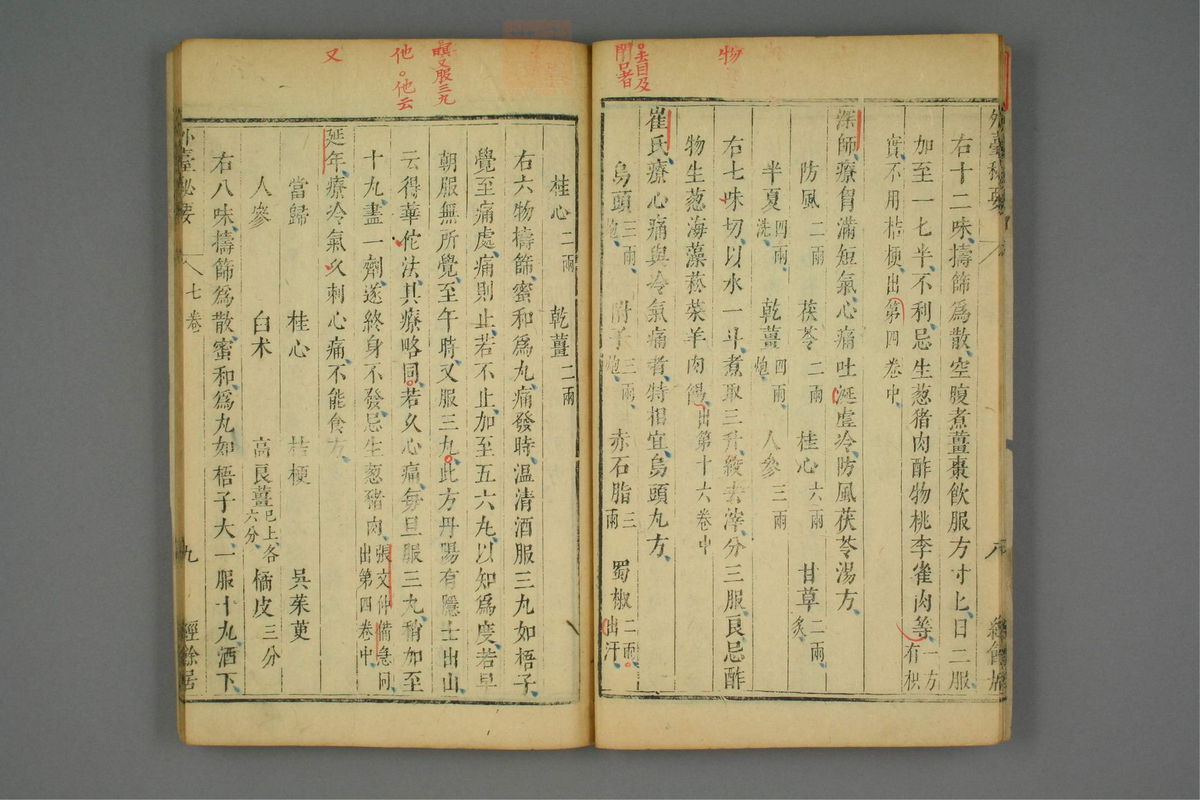 外臺秘要
八
經餘居
右十二味擣篩爲散空腹煮薑棗飲服方寸匕日二服
加至一七半不利忌生葱猪肉酢物桃李雀肉等一方有枳
實不用桔梗出第四卷中
深師療胷滿短氣心痛吐涎虛冷防風茯苓湯方
防風二兩 茯苓二兩 桂心六兩 甘草二兩炙
半夏四兩洗 乾薑四兩炮 人參三兩
右七味切以水一斗煮取三升絞去滓分三服良忌酢
物生葱海藻菘菜羊肉餳出第十六卷中
崔氏療心痛與冷氣痛者特相宜烏頭丸方
烏頭三兩炮 附子三兩炮 赤石脂三兩 蜀椒二兩出汗
物
去目及
閉口者
桂心二兩 乾薑二兩
右六物擣篩蜜和爲丸痛發時温清酒服三丸如梧子
覺至痛處痛則止若不止加至五六丸以知爲度若早
朝服無所覺至午時又服三丸此方丹陽有隱士出山
云得華佗法其療略同若久心痛每旦服三丸稍加至
十丸盡一劑遂終身不發忌生葱豬肉張文仲備急同出第四卷中
延年療冷氣久刺心痛不能食方
當歸 桂心 桔梗 吳茱萸
人參 白术 高良薑已上各六分 橘皮三分
右八味擣篩爲散蜜和爲丸如梧子大一服十丸酒下
又服三丸
他。他云
又
外臺秘要
七卷
九
經餘居